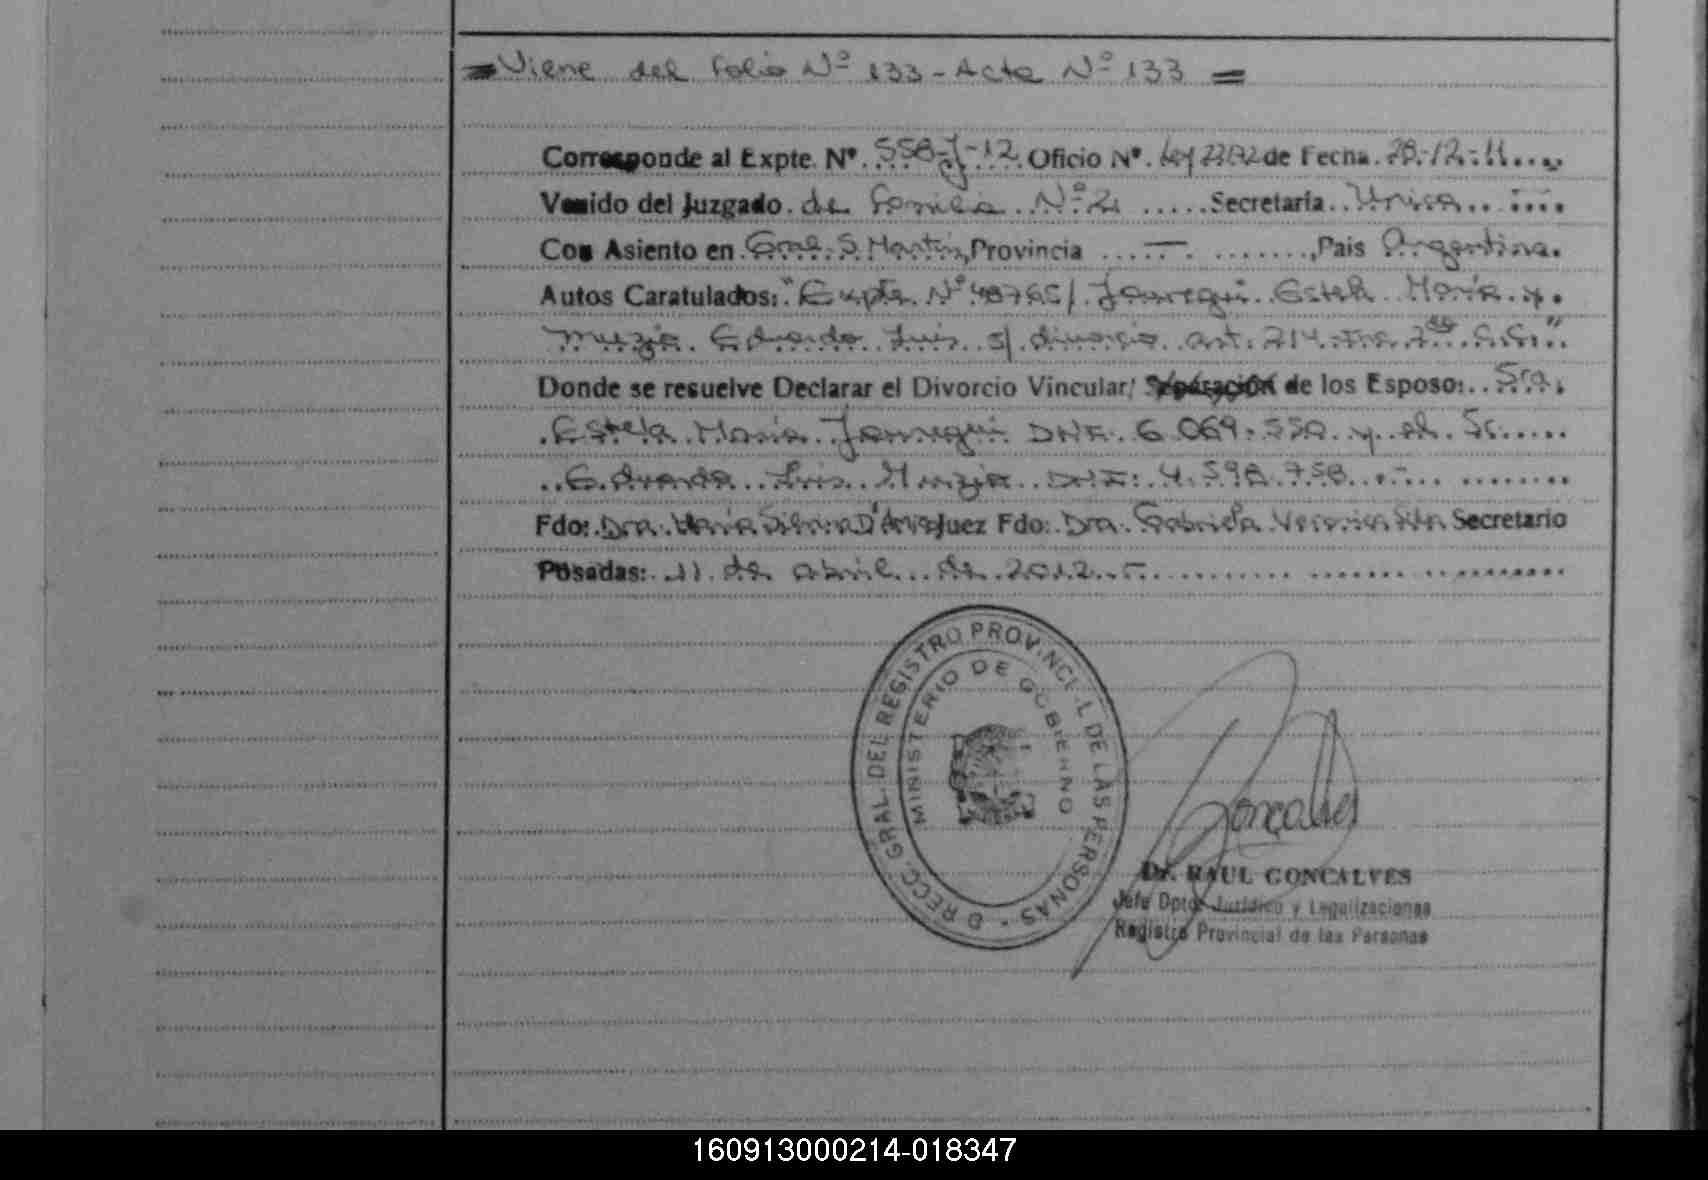 = Viene del folio Nº 133 - Acta Nº 133 =
Corresponde al Expte. Nº. 558-J-12 Oficio Nº. Ley 22172 de Fecha. 28-12-11....
Venido del Juzgado. de Familia Nº 2 ..... Secretaría.. Unica.. ....
Con Asiento en Gral. S. Martin, Provincia .... — . ......., País Argentina.
Autos Caratulados: "Expte. Nº 48765/ Jauregui Estela María y
Muzzia Eduardo Luis s/ divorcio art. 214 inc. 2do C.C."
Donde se resuelve Declarar el Divorcio Vincular/ Separación de los Esposo:.. Sra.
Estela María Jauregui DNI: 6.069.550 y el Sr.....
Eduardo Luis Muzzia DNI: 4.598.758
Fdo: Dra. María Silvina D'Amico Juez Fdo: Dra. Gabriela Veronica Silva Secretario
Posadas: 11 de abril de 2012.-
DIRECC. GRAL. DEL REGISTRO PROVINCIAL DE LAS PERSONAS -
MINISTERIO DE GOBIERNO
Gonçalves
Dr. RAUL GONCALVES
Jefe Dpto. Jurídico y Legalizaciones
Registro Provincial de las Personas
160913000214-018347